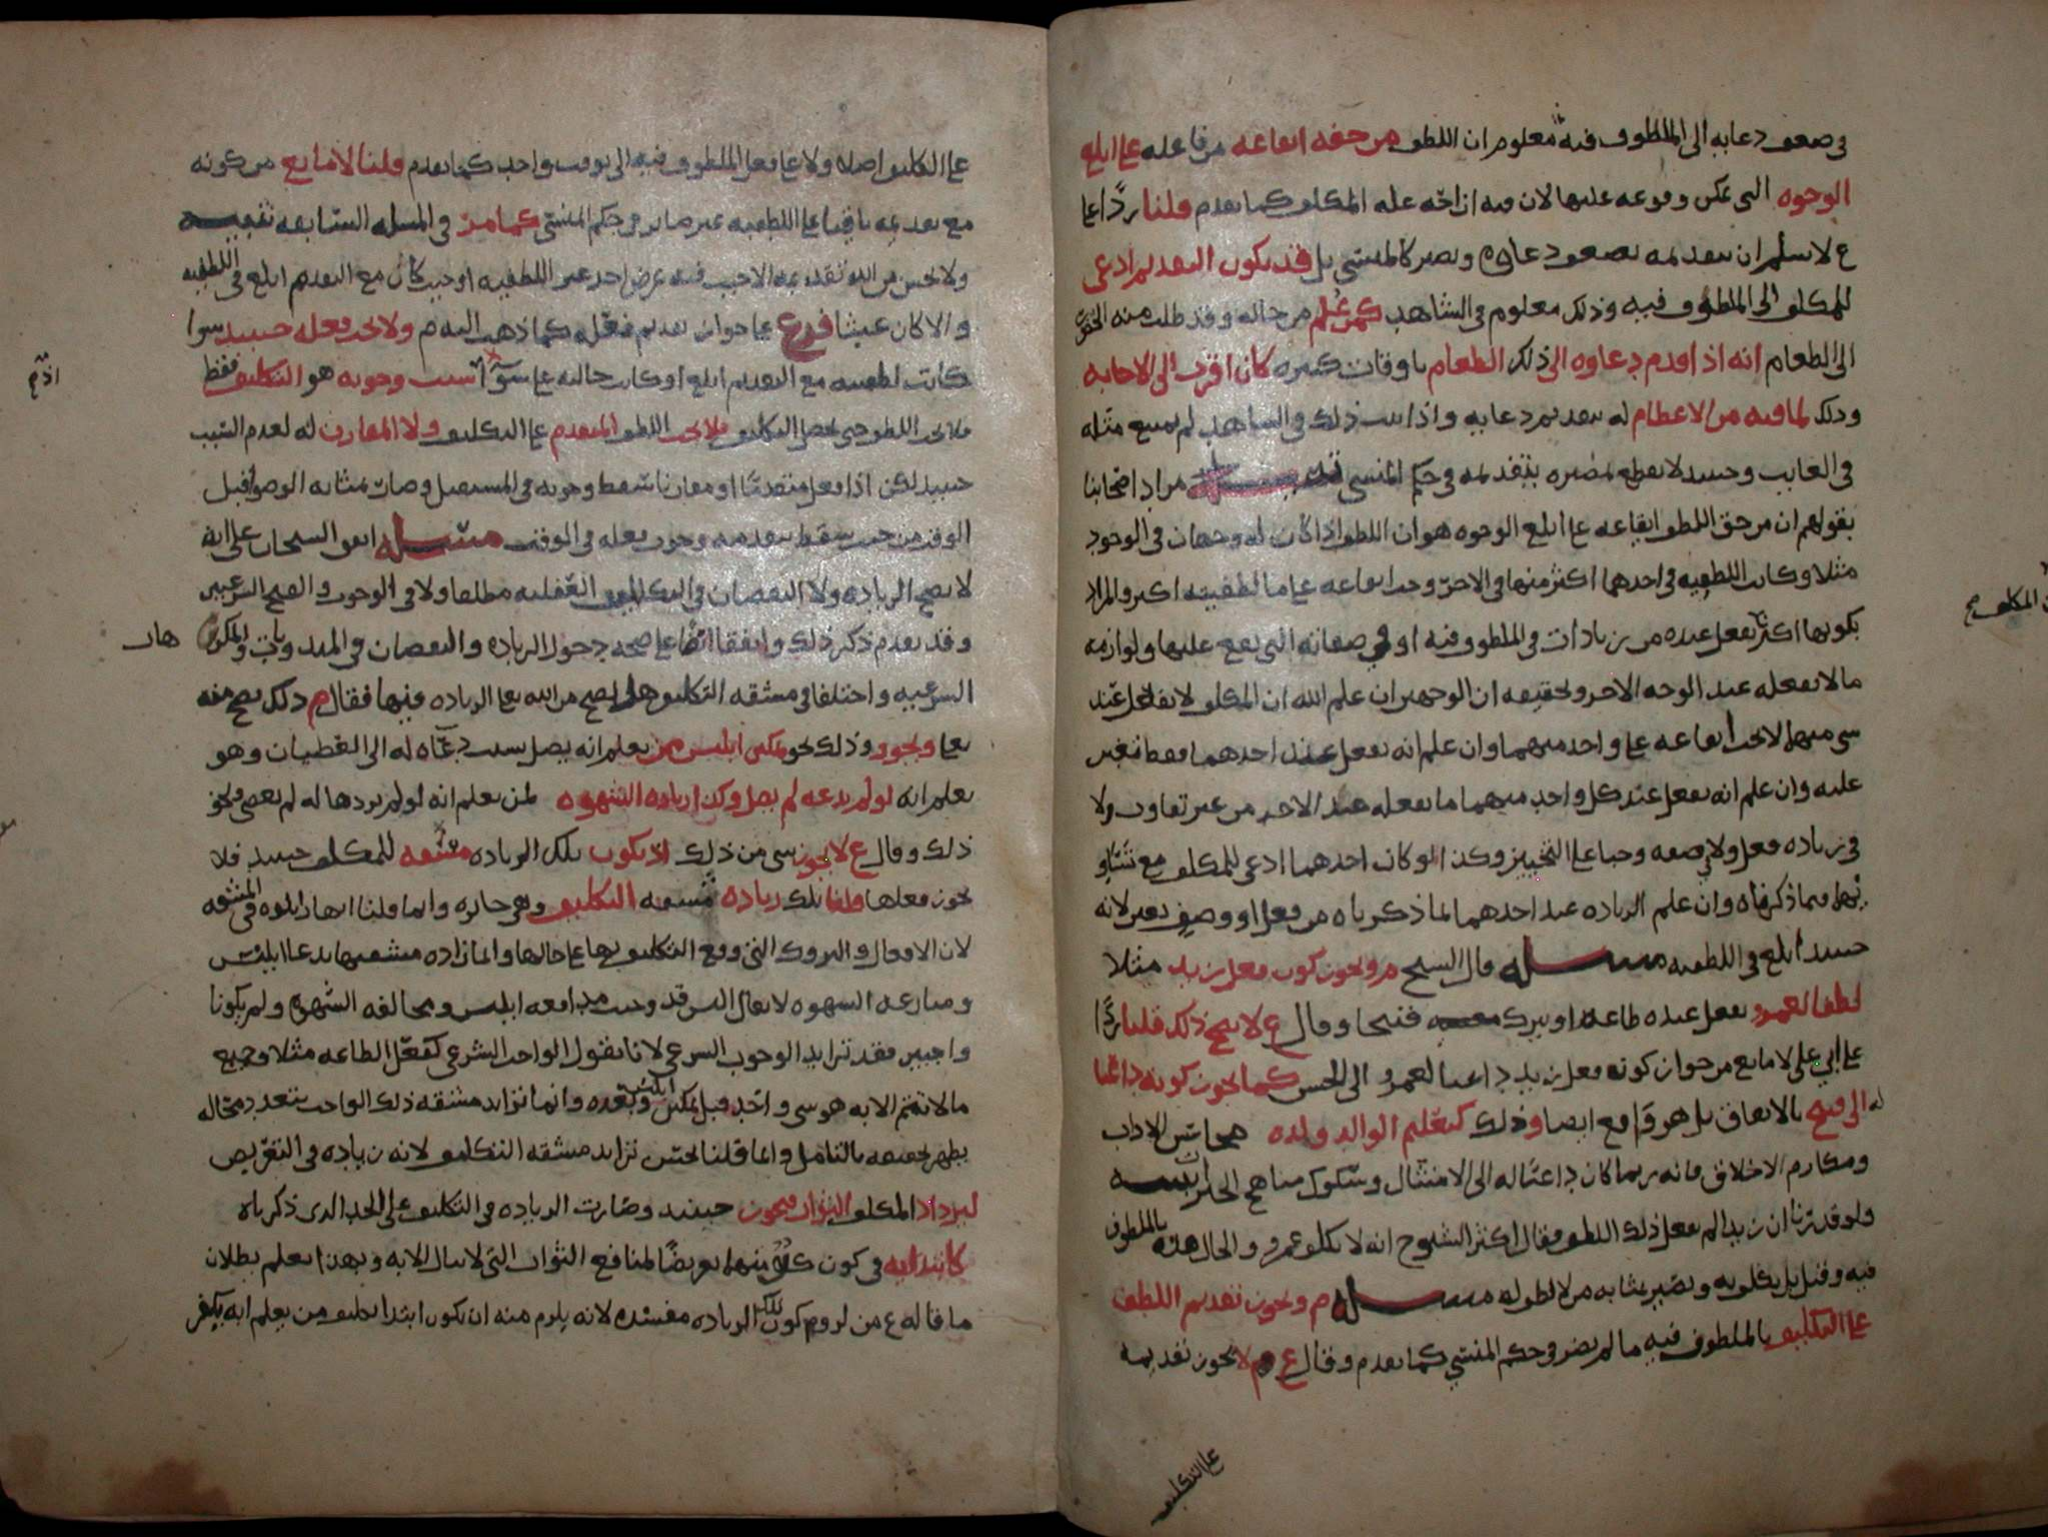 في ضعف دعايه الى الملطوف فيه معلوم ان اللطف من حقه ايقاعه من فاعله على ابلغ
الوجوه التي يمكن وقوعه عليها لان فيه ازاحه عله المكلف كما تقدم قلنا ردًّا على
ع لا نسلم ان بتقديمه يضعف دعاوه ويصير كالمنسي بل قد يكون التقديم ادعى
للمكلف الى الملطوف فيه وذلك معلوم في الشاهد كمن علم من حاله وقد طلب منه الحضور
الى الطعام انه اذا قدم دعاوه الى ذلك الطعام باوقات كثيره كان اقرب الى الاجابه
وذلك لما فيه من الاعظام له بتقديم دعايه واذا ثبت ذلك في الشاهد لم يمتنع مثله
في الغايب وحينيد لا نقطع بمصيره بتقديمه في حكم المنسي تنبيه مراد اصحابنا
بقولهم ان من حق اللطف ايقاعه على ابلغ الوجوه هو ان اللطف اذا كان له وجهان في الوجود
مثلا وكانت اللطفيه في احدهما اكثر منها في الاخر وجب ايقاعه على ما لطفيته اكثر والمراد
بكونها اكثر ان يفعل عنده من زيادات في الملطوف فيه او في صفاته التي يقع عليها ولوازمه
ما لا يفعله عند الوجه الاخر وتحقيقه ان الوجهين ان علم الله ان المكلف لا يفعل عند
شي منهما لا يجب ايقاعه على واحد منهما وان علم انه يفعل عند احدهما فقط تعين
عليه وان علم انه يفعل عند كل واحد منهما ما يفعله عند الاخر من غير تفاوت ولا
في زياده فعل ولا في صفه وجبا على التخيير وكذا لو كان احدهما ادعى للمكلف مع تساو
يهما فيما ذكرناه وان علم الزياده عند احدهما لما ذكرناه من فعل او وصف تعين لانه
حينيد ابلغ في اللطفيه مسله قال الشيخ م ويجوز كون فعل زيد مثلا
لطفا لعمرو يفعل عنده طاعه او يترك قبيحا وقال ع لا يصح ذلك قلنا ردًّا
على ابي علي لا مانع من جواز كونه فعل زيد داعيا لعمرو الى الحسن كما يجوز كونه داعيا
له الى قبيح بالاتفاق بل هو واقع ايضا وذلك كتعليم الوالد ولده محاسن الاداب
ومكارم الاخلاق فانه ربما كان داعيا له الى الامتثال وسلوك مناهج الخير تنبيه
ولو قدرنا ان زيدا لم يفعل ذلك اللطف فقال اكثر الشيوخ انه لا يكلف عمرو والحال هذه بالملطوف
فيه وقيل بل يكلف به ويصير بمثابه من لا لطف له مسله م ويجوز تقديم اللطف
على التكليف بالملطوف فيه ما لم يصر في حكم المنسي كما تقدم وقال ع م لا يجوز تقديمه
على التكليف
على التكليف اصلا ولا على فعل الملطوف فيه الى بوقت واحد كما تقدم قلنا لا مانع من كونه
مع تقديمه باقيا على اللطفيه غير صاير في حكم المنسي كما مر في المسله السابقه تنبيه
ولا يحسن من الله تقديمه الا حيث فيه غرض احد غير اللطفيه او حيث كان مع التقديم ابلغ في اللطفيه
والا كان عبثا فرع على جواز تقديم فعله كما ذهب اليه م ولا يجب فعله حينيد سوا
كانت لطفيته مع التقديم ابلغ او كانت حالته على سوا اذ سبب وجوبه هو التكليف فقط
فلا يجب اللطف حتى يحصل التكليف فلا يجب اللطف المتقدم على التكليف ولا المقارن له لعدم السبب
حينيد لكن اذا فعل متقدمًا او مقارنا سقط وجوبه في المستقبل وصار بمثابه الوضو قبل
الوقت من حيث سقط بتقديمه وجوب فعله في الوقت مسله اتفق الشيخان على انه
لا يصح الزياده ولا النقصان في التكاليف العقليه مطلقا ولا في الوجوب والقبح الشرعيين
وقد تقدم ذكر ذلك واتفقا ايضا على صحه دخول الزياده والنقصان في المندوبات والمكروهات
الشرعيه واختلفا في مشقه التكليف هل يصح من الله تعالى الزياده فيها فقال م ذلك يصح منه
تعالى ويجوز وذلك نحو تمكين ابليس ممن يعلم انه يضل بسبب دعاه له الى العصيان وهو
يعلم انه لو لم يدعه لم يضل وكذا زياده الشهوه لمن يعلم انه لو لم يزدها له لم يعص ونحو
ذلك وقال ع لا يجوز شي من ذلك اذ يكون تلك الزياده مفسده للمكلف حينيد فلا
يجوز فعلها قلنا تلك زياده مشقه التكليف وهي جايزه وانما قلنا انها زايده في المشقه
لان الافعال والتروك التي وقع التكليف بها على حالها وانما زاده مشقتها بدعا ابليس
ومنازعه الشهوه لا يقال اليس قد وجب مدافعه ابليس ومخالفه الشهوه ولم يكونا
واجبين فقد تزايد الوجوب الشرعي لانا نقول الواجب الشرعي كفعل الطاعه مثلا وجميع
ما لا تتم الا به هو شي واحد قبل تمكين ابليس وبعده وانما تزايد مشقه ذلك الواجب بتعدد محاله
يظهر تحقيقه بالتامل وانما قلنا بحسن تزايد مشقه التكليف لانه زياده في التعريض
ليزداد المكلف الثواب فيجوز حينيد وصارت الزياده في التكليف على الحد الذي ذكرناه
كابتدايه في كون كل منهما تعريضًا لمنافع الثواب التي لا تنال الا به وبهذا يعلم بطلان
ما قاله ع من لزوم كون تلك الزياده مفسده لانه يلزم منه ان يكون ابتدا تكليف من يعلم انه يكفر